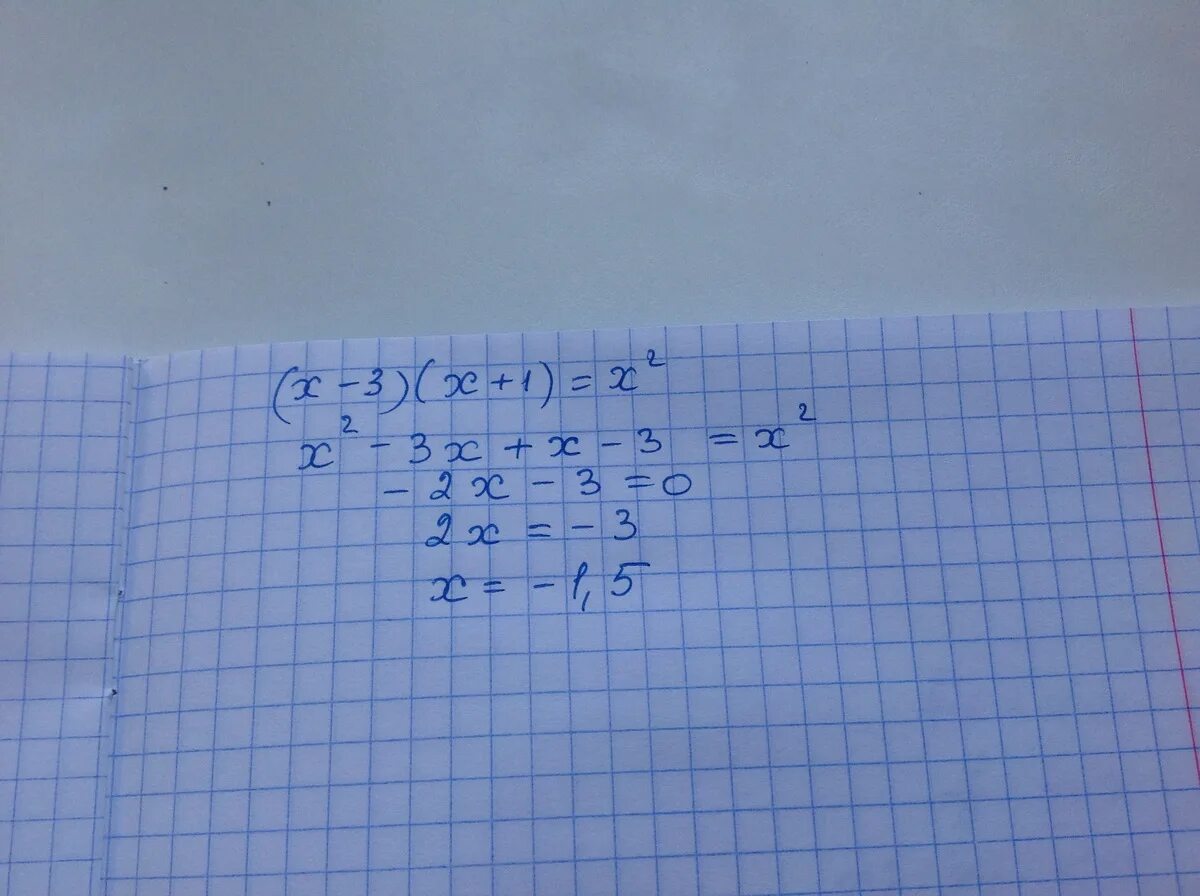 (x - 3)(x + 1) = x²
x² - 3x + x - 3 = x²
- 2x - 3 = 0
2x = - 3
x = - 1,5